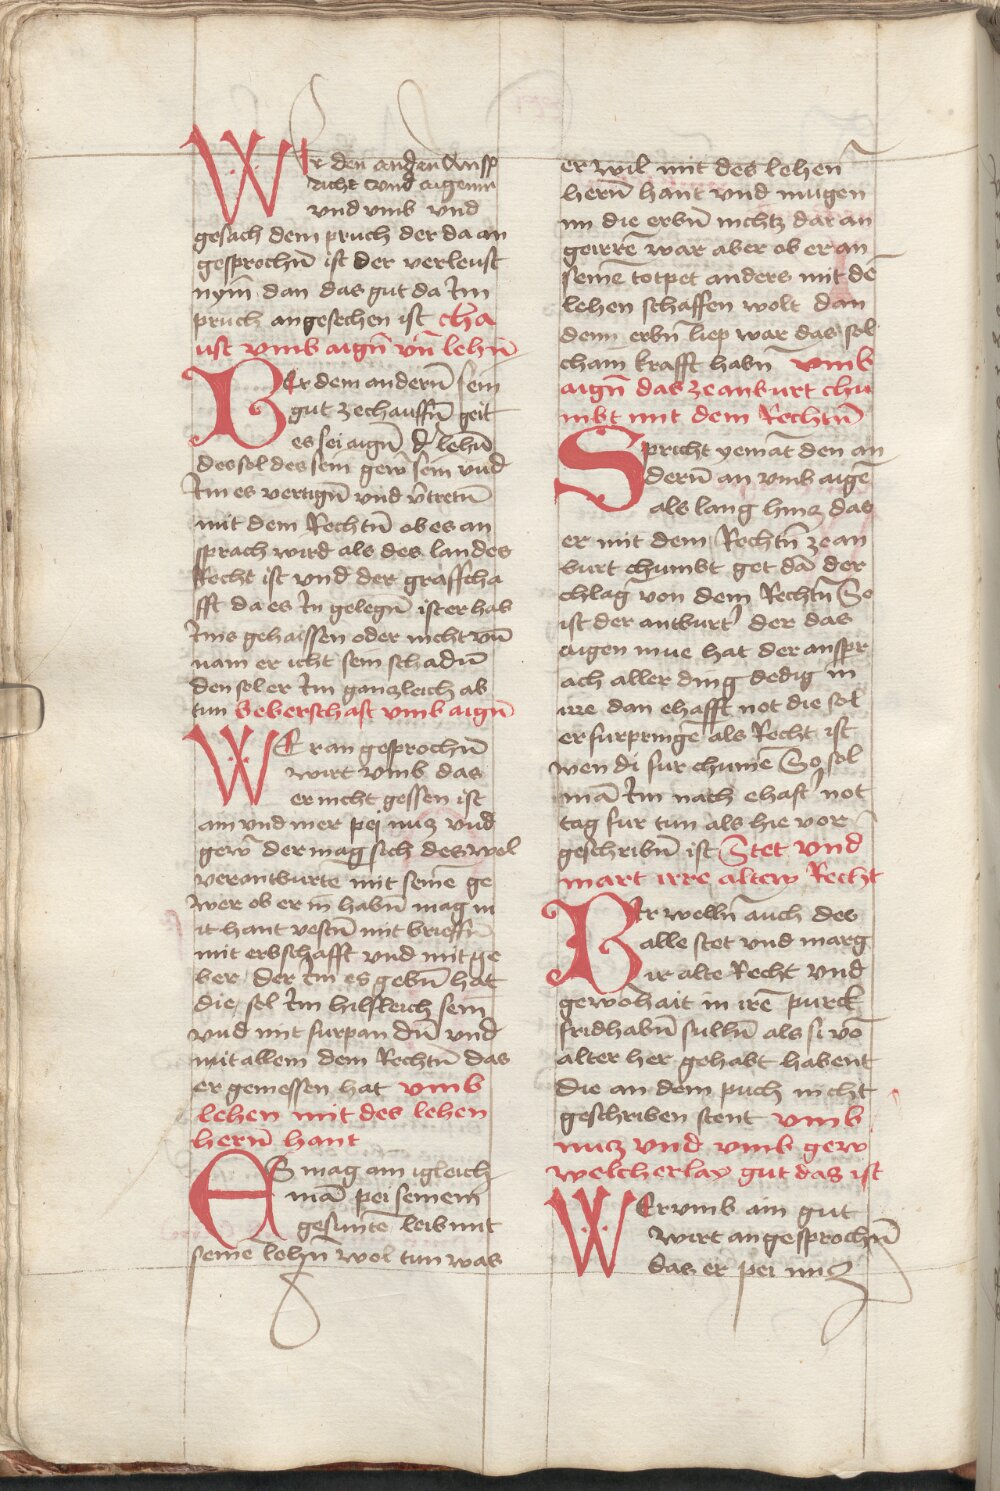 Wer den andern Ansp
richt vmb aigenn
vnd vmb vnd
gesach dem pruch der da an
gesprochn̄ ist der verleust
nym̄ dan das gut da Im
pruch angesechen ist cha
ust vmb aign̄ vn̄ lehn̄
Wer dem andern̄ sein
gut zechauffn̄ geit
es sei aign̄ oder lehn̄
des sol des sein gewer sein vnd
Im es vertign̄ vnd vertretn̄
mit dem Rechtn̄ ob es an
sprach wird als des landes
Recht ist vnd der graffscha
fft da es In gelegn̄ ist er hab
Ims gehaissen oder nicht vn̄
nam er icht sein schadn̄
den sol er Im ganczleich ab
tun beherschaft vmb aign̄
WEr an gesprochn̄
wirt vmb das
er nicht gessen ist
ain vnd mer pei nucz vnd
gewer der mag sich des wol
verantburte mit seinē ge
wer ob er in habn̄ mag in
it hant vestn̄ mit brieffn̄
mit erbschafft vnd mit ge
ber der Im es gebn̄ hat
die sol Im hilfleich sein
vnd mit furpan dn̄ vnd
mit allem dem Rechtn̄ das
er genessen hat vmb
lehen mit des lehen
hern̄ hant
ES mag ain igleich
mā pei seinem
gesuntē leib mit
seinē lehn̄ wol tun was
er wil mit des lehen
hern̄ hant vnd mugen
im die erbn̄ nichtz dar an
geirrē war aber ob er an
seinē totpet anders mit dē
lehen schaffen wolt dan
denn erbn̄ liep war das sol
chain krafft habn̄ vmb
aign̄ das ze antburt chu
mbt mit dem Rechtn̄
Spricht yemāt den an
dern̄ an vmb aigē
als lang hincz das
er mit dem Rechtn̄ ze an
burt chumbt get dā der
chlaḡ von dem Rechtn̄ So
ist der antburter der das
aigen inne hat der anspr
ach aller ding ledig in
irre dan ehafft not die sol
er furpringē als Recht ist
wen di fur chumē So sol
mā Im nach ehaft not
tag fur tun als hie vor
geschribn̄ ist Stet vnd
mart irre altew Recht
Wir welln̄ auch das
alle stet vnd marg
ir alte Recht vnd
gewohait in irē purck
fridhabn̄ sulln̄ als si vō
alter her gehabt habent
die an dem puch nicht
geschriben stent vmb
nucz vnd vmb gew
welcherlay gut das ist
WEr vmb ain gut
wirt angesprochn̄
das er pei nucz